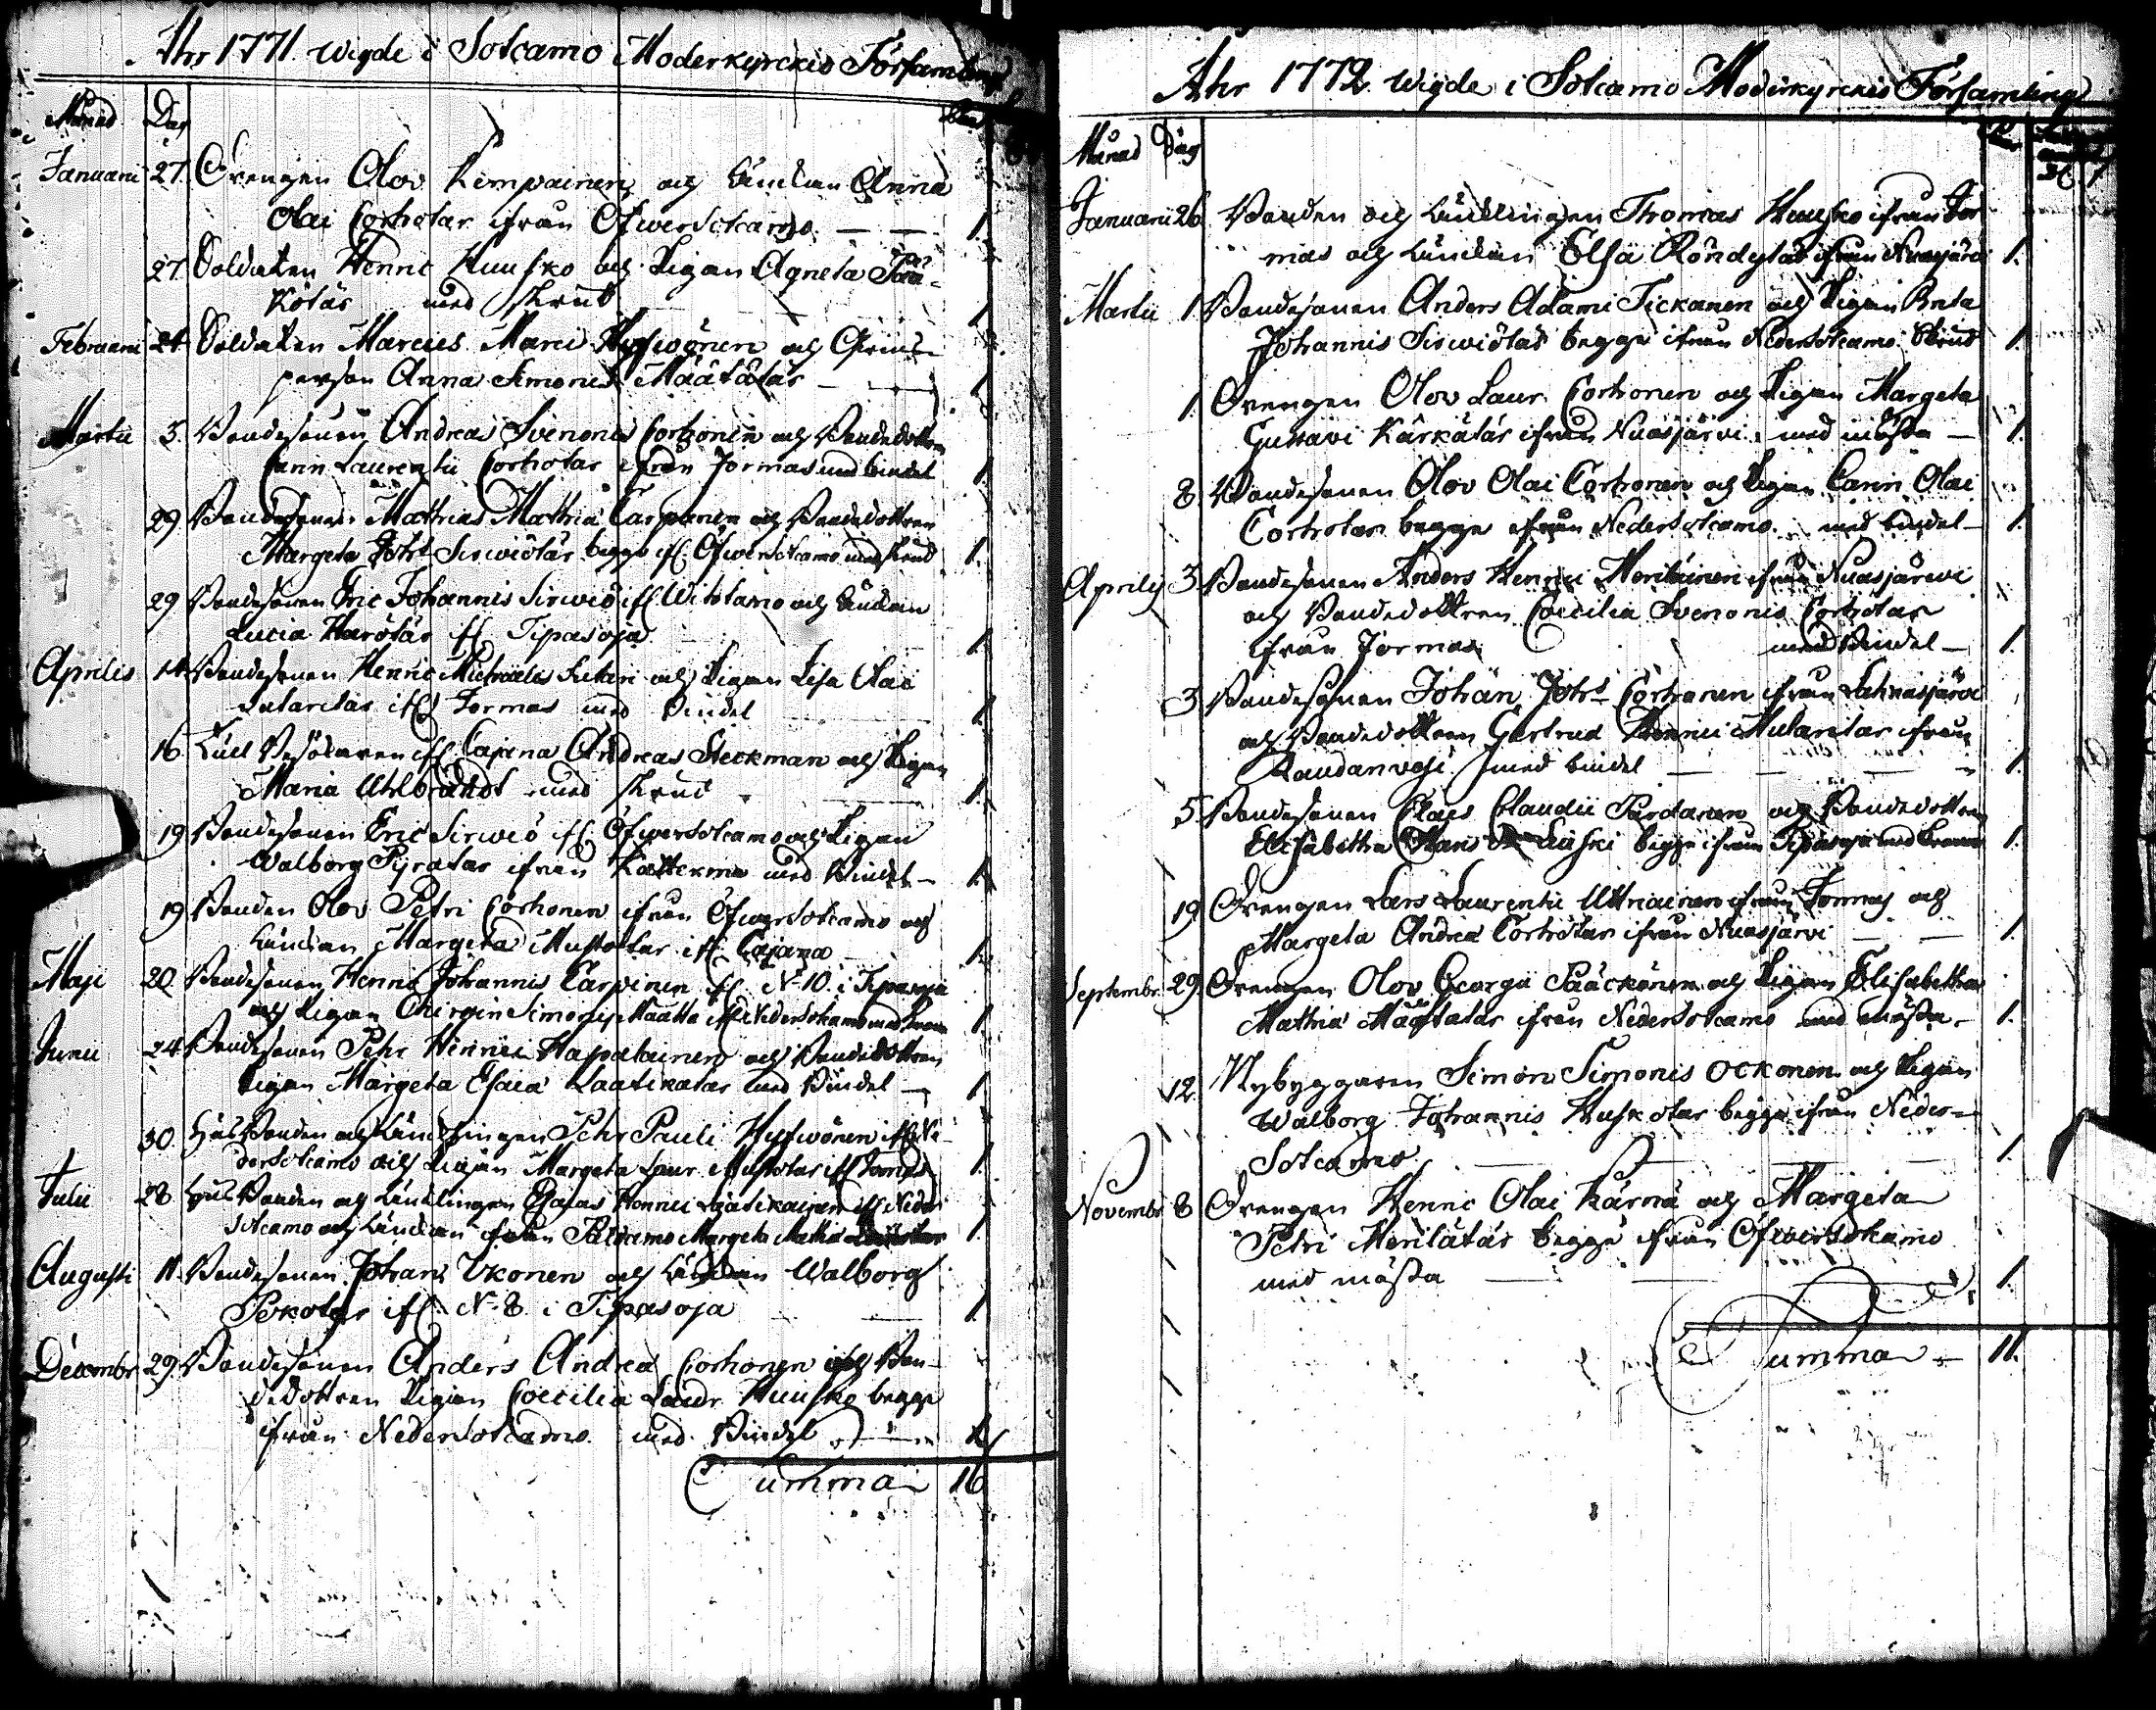 Ahr 1771. Wigde i Sotcamo Moderkyrckio Församling
Månad Dag Par
Januarii 27. Drengen Olov Kempainen och Enckan Anna
Olai Corhotar ifrån Öfwersotcamo. — 1.
27. Soldaten Henric Huusko och Pigan Agneta Pää-
kötär med skrud 1.
Februarii 24. Soldaten Marcus Marci Hyfwönen och Qwins-
person Anna Simonis Määtätär 1.
Martii 3. Bondesonen Andreas Svenonis Corhonen och Bondedottren
Carin Laurentii Corhotar ifrån Jormas med bindel 1.
29. Bondesonen Mathias Mathiæ Carpinen och Bondedottren
Margeta Johs Sirwiötär begge ifl Öfwersotcamo med skrud 1.
29 Bondesonen Eric Johannis Sirwiö ifl. Witotamo och Enckan
Lucia Harötär ifl Tipasoja 1.
Aprilis 14. Bondesonen Henric Michaelis och Pigan Lisa Olai
ifl Jormas med Bindel 1
16 ifl Cajana Andreas Steckman och Pigan
Maria Ahlbrandt med skrud 1.
19 Bondesonen Eric Sirwiö ifl. Öfwersotcamo och Pigan
Walborg Pyratar ifrån Katterma med Bindel — 1.
19 Bonden Olov Petri Corhonen ifrån Öfwersotcamo och
Enckan Margeta Mustotar ifl Cajana 1.
Maji 20. Bondesonen Henric Johannis Carpinen ifl. N-10. i Tipasoja
och Pigan Chirstin Simonis Määttä ifl Nedersotkamo med 1.
Junii 24. Bondesonen Pehr Henrici Hapalainen och Bondedottren
Pigan Margeta Esaiæ Laatikatar med Bindel — 1
30. Husbonden och Encklingen Pehr Pauli Hyfwönen ifl. Ne-
dersotcamo och Pigan Margeta Laur. Mustotar ifl Jormas 1.
Julii 28 Husbonden och Encklingen Esaias Henrici Laatikainen ifl Neder
sotcamo och Enckan ifrån Paldamo Margeta Mathiæ 1.
Augusti 11. Bondesonen Johan Ukonen och Enckan Walborg
Pekotar ifl. N-8 i Tipasoja 1
Decembr 29. Bondesonen Anders Andreæ Corhonen och Bon-
dedottren Pigan Coecilia Laur. Huusko begge
ifrån Nedersotcamo. med Bindel 1
Summa 16
Ahr 1772. Wigde i Sotcamo Moderkyrckio Församling
Månad Dag Par
Januarii 26 Bonden och Encklingen Thomas Huusko ifrån Jor
mas och Enckan Elsa Röndytär ifrån Nuasjärvi 1.
Martii 1. Bondesonen Anders Adami Tickanen och Pigan Brita
Johannis Sirwiötär begge ifrån Nedersotcamo. Skrud 1.
1. Drengen Olov Laur. Corhonen och Pigan Margeta
Gustavi Kärkätär ifrån Nuasjärvi. med mössa — 1.
8. Bondesonen Olov Olai Corhonen och Pigan Carin Olai
Corhotar begge ifrån Nedersotcamo. med bindel — 1.
Aprilis 3 Bondesonen Anders Henrici Meriläinen ifrån Nuasjärwi
och Bondedottren Coecilia Svenonis Corhotar
ifrån Jormas med Bindel — 1.
3 Bondesonen Johan Johs Corhonen ifrån Lahnasjärvi
och Bondedottren Gertrud Henrici Mularitar ifrån
Raudanvesi med bindel — 1.
5 Bondesonen Claes Claudii Pardanen och Bondedottren
Elisabetha begge ifrån Tipasoja med 1.
19 Drengen Lars Laurentii Uttriainen ifrån Jormas och
Margeta Andreæ Corhotar ifrån Nuasjärvi — 1.
Septembr 29. Drengen Olov Georgii Pääckönen och Pigan Elisabetha
Mathiæ Määtätär ifrån Nedersotcamo med mössa — 1.
12. Nybyggaren Simon Simonis Ockonen och Pigan
Walborg Johannis Huskotar begge ifrån Neder-
Sotcamo. — 1.
Novembr 8 Drengen Henric Olai Kärnä och Margeta
Petri Merilätär begge ifrån Öfwersotkamo
med mössa — 1.
Summa — 11.